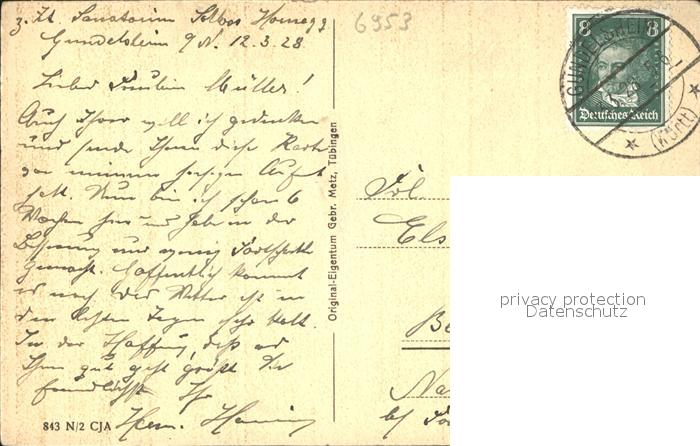 z. Zt. Sanatorium Schloss Hornegg
Gundelsheim a/N. 12.3.28
6953
Liebes Fräulein Müller!
Auch Ihrer will ich gedenken
und sende Ihnen diese Karte
von meinem hiesigen Aufent
halt. Nun bin ich schon 6
Wochen hier und habe in der
Besserung nur wenig Fortschritte
gemacht. Hoffentlich kommt
es noch. Das Wetter ist in
den letzten Tagen sehr kalt.
In der Hoffnung, daß es
Ihnen gut geht grüßt Sie
freundlichst Ihr
Herm.
843 N/2 CJA
Original-Eigentum Gebr. Metz, Tübingen
8 8
Deutsches Reich
GUNDELSHEIM
(Württ)
Frl.
Els
Be
Na
privacy protection
Datenschutz